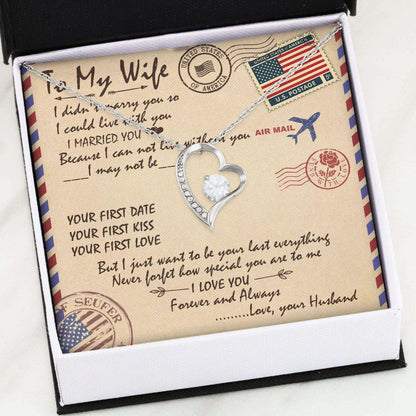 To My Wife
UNITED STATES
OF AMERICA
U.S. POSTAGE
I didn't marry you so
I could live with you
I MARRIED YOU
Because I can not live without you
AIR MAIL
____I may not be____
YOUR FIRST DATE
YOUR FIRST KISS
YOUR FIRST LOVE
But I just want to be your last everything
Never forfet how special you are to me
I LOVE YOU
Forever and Always
.........Love, your Husband
OF SEUFER